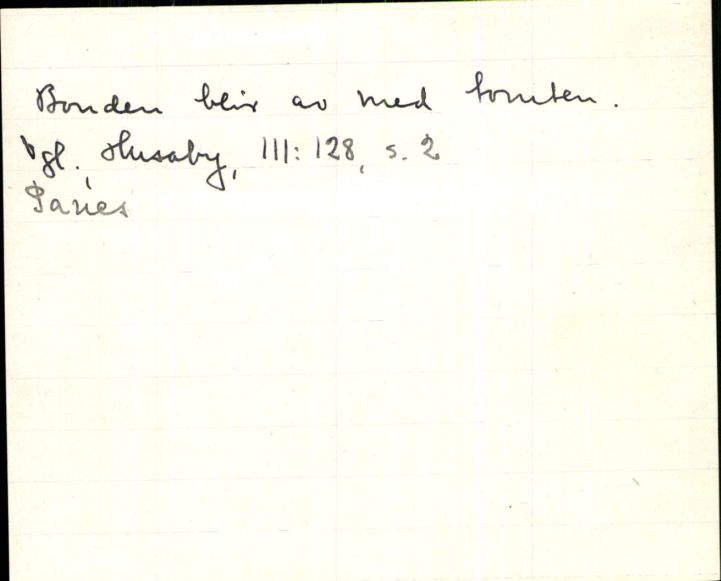 Bonden blir av med tomten.
Vgl. Husaby, III: 128, s. 2